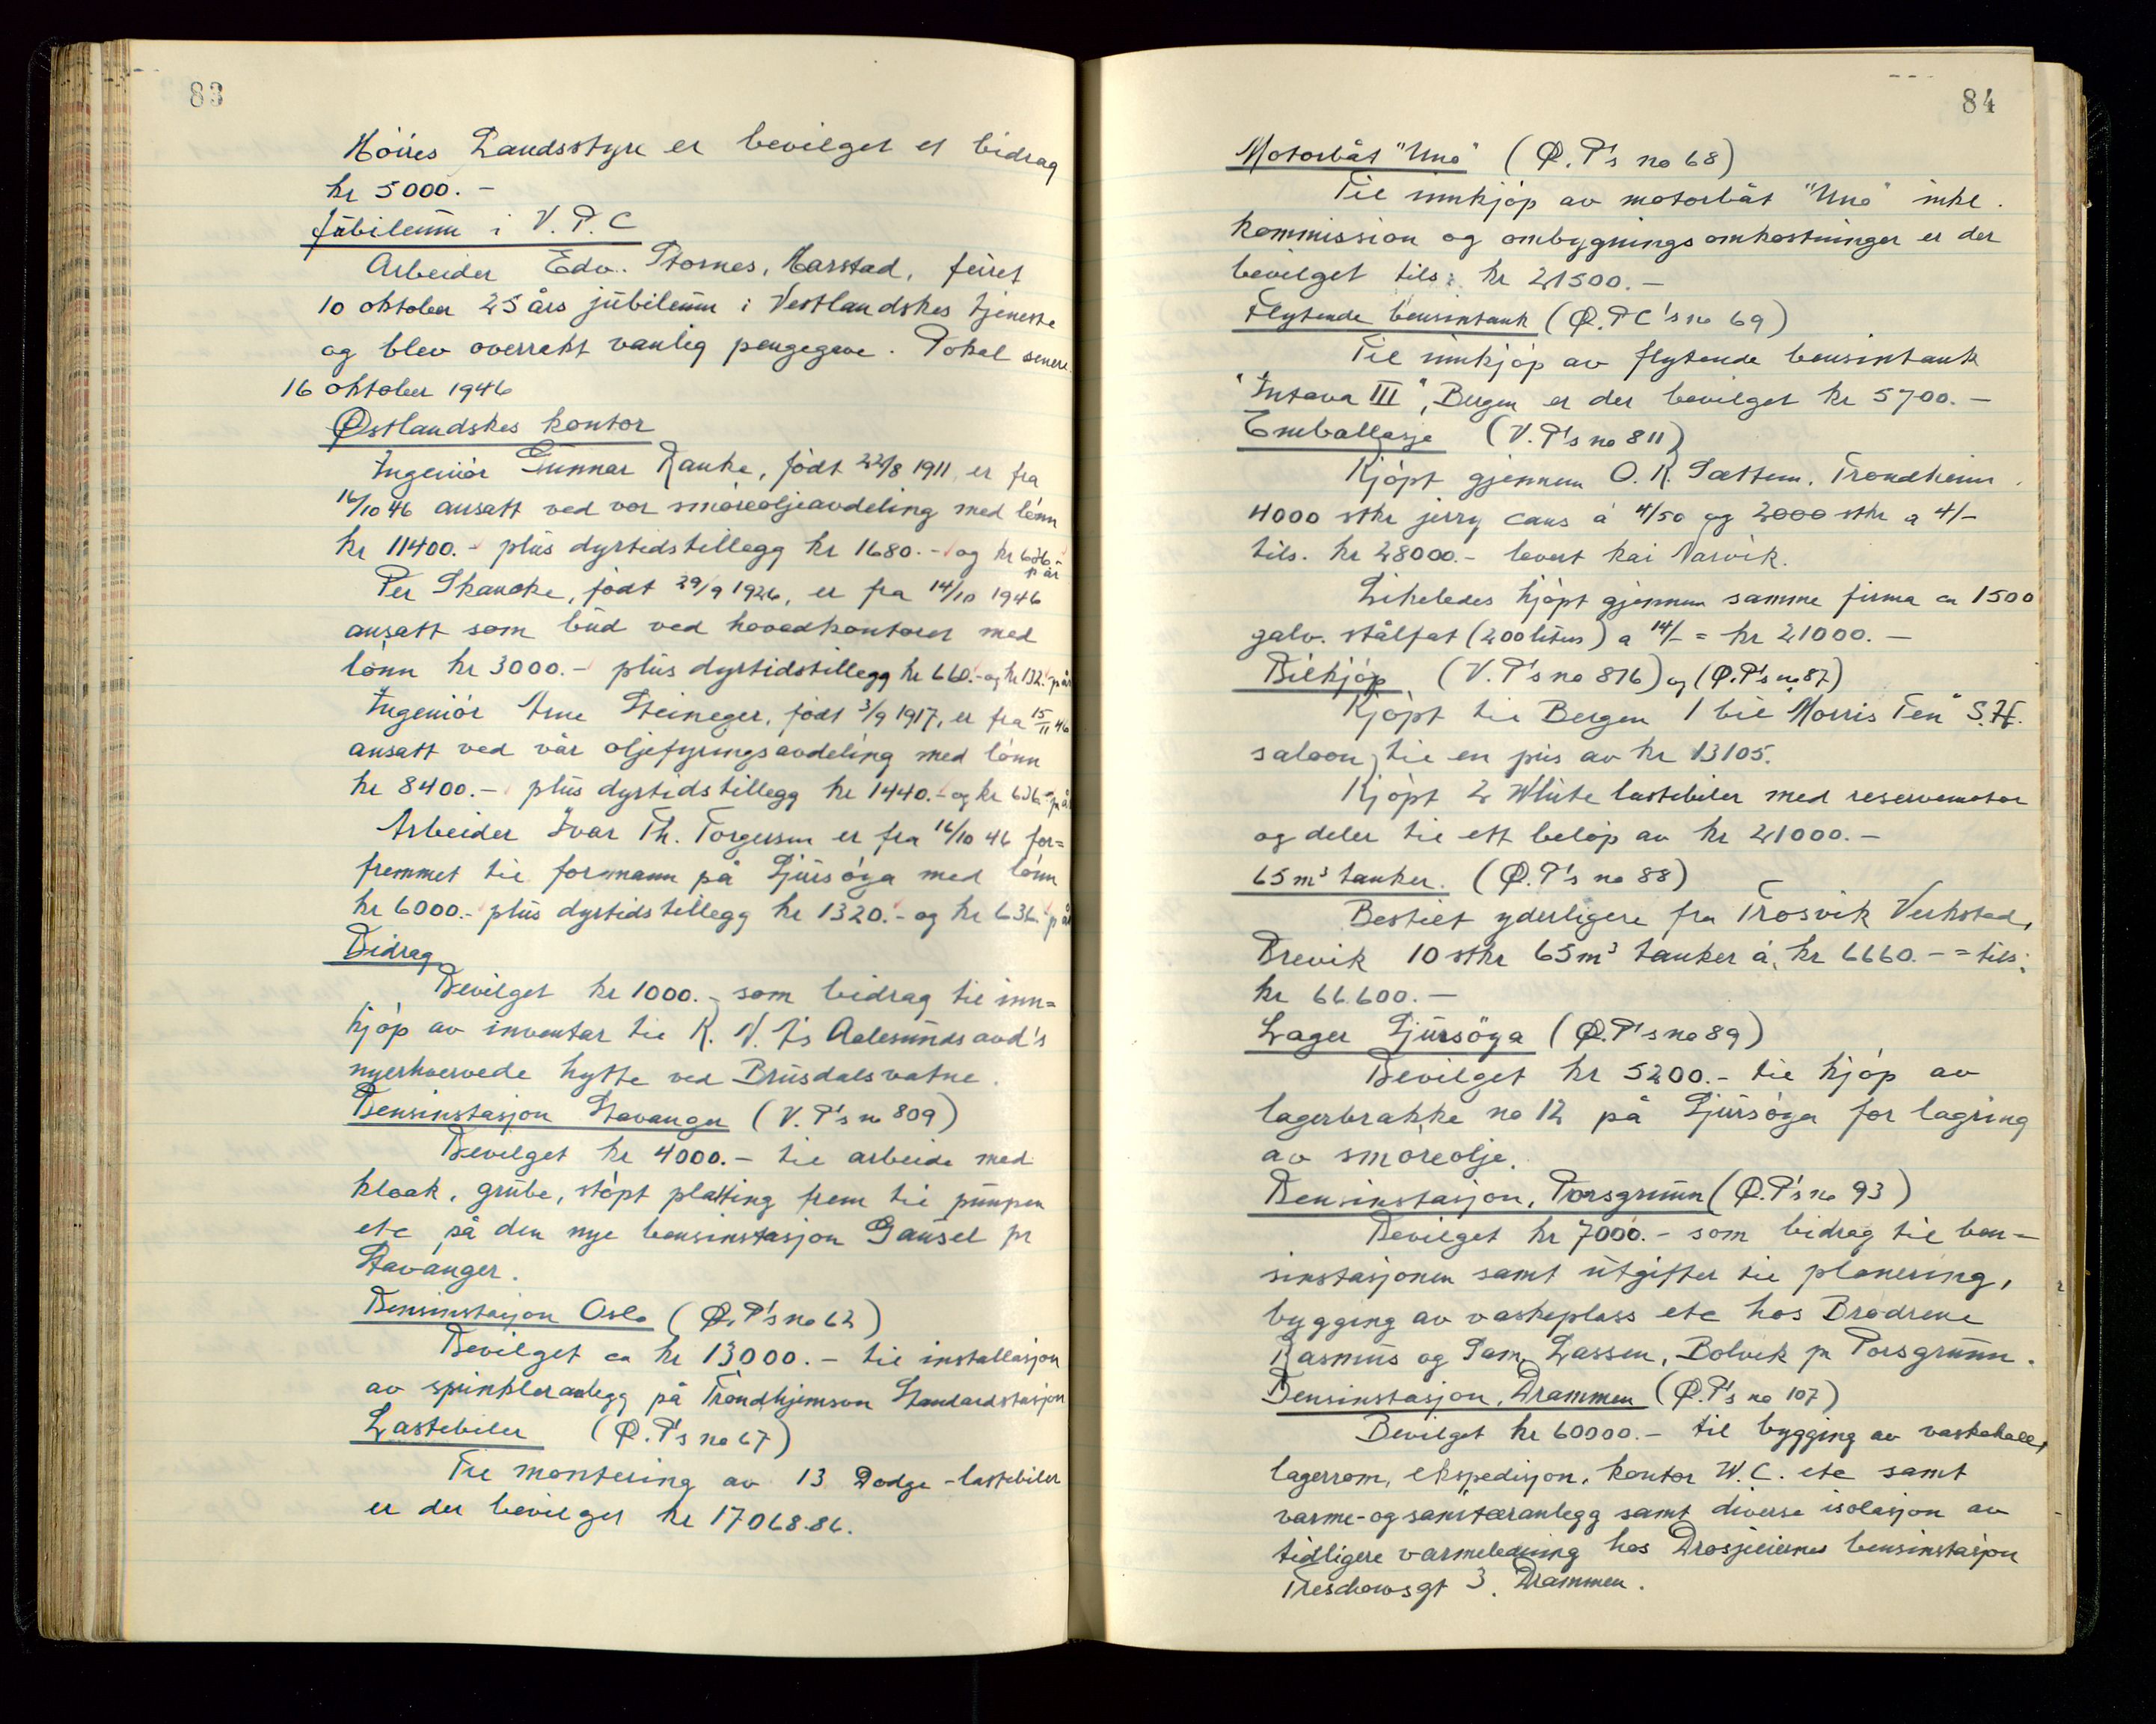 83
Höires Landsstyre er bevilget et bidrag
kr 5000.-
Jubileum i V. P. C
Arbeider Edv. Stornes, Harstad, feiret
10 oktober 25 års jubileum i Vestlandskes tjeneste
og blev overrakt vanlig pengegave. Pokal senere.
16 oktober 1946
Østlandskes kontor
Ingeniør Gunnar Ranke, født 22/8 1911, er fra
16/10 46 ansatt ved vor smøreoljeavdeling med lønn
kr 11400.- plus dyrtidstillegg kr 1680.- og kr 636.-
p år
Per Skancke, født 29/9 1926, er fra 14/10 1946
ansatt som bud ved hovedkontoret med
lønn kr 3000.- plus dyrtidstillegg kr 660.- og kr 132.- p år
Ingeniør Arne Steineger, født 3/9 1917, er fra 15/11 46
ansatt ved vår oljefyringsavdeling med lønn
kr 8400.- plus dyrtidstillegg kr 1440.- og kr 636.- p år
Arbeider Ivar Th. Torgersen er fra 16/10 46 for=
fremmet til formann på Sjursøya med lønn
kr 6000.- plus dyrtidstillegg kr 1320.- og kr 636.- p år
Bidrag
Bevilget kr 1000.- som bidrag til inn=
kjøp av inventar til K. N. A's Aalesunds avd's
nyerhvervede hytte ved Brusdalsvatne.
Bensinstasjon Stavanger (V. P's no 809)
Bevilget kr 4000.- til arbeide med
kloak, grube, støpt platting frem til pumpen
etc på den nye bensinstasjon Gausel pr
Stavanger.
Bensinstasjon Oslo (Ø. P's no 62)
Bevilget ca kr 13000.- til installasjon
av sprinkleranlegg på Trondhjemsvn Standardstasjon
Lastebiler (Ø. P's no 67)
Til montering av 13 Dodge-lastebiler
er der bevilget kr 17068.86.
84
Motorbåt "Uno" (Ø. P's no 68)
Til innkjøp av motorbåt "Uno" inkl.
kommission og ombygningsomkostninger er der
bevilget tils: kr 21500.-
Flytende bensintank (Ø. P C's no 69)
Til innkjøp av flytende bensintank
"Intava III", Bergen er der bevilget kr 5700.-
Emballasje (V. P's no 811)
Kjøpt gjennem O. K. Sættem, Trondheim
4000 stkr jerry cans á 4/50 og 2000 stkr a 4/-
tils. kr 28000.- levert kai Narvik.
Likeledes kjøpt gjennem samme firma ca 1500
galv. stålfat (200 liters) a 14/- = kr 21000.-
Bilkjøp (V. P's no 816) og (Ø. P's no 87)
Kjøpt til Bergen 1 bil "Morris Ten" S.H.
saloon, til en pris av kr 13105.
Kjøpt 2 White lastebiler med reservemotor
og deler til ett beløp av kr 21000.-
65 m³ tanker. (Ø. P's no 88)
Bestilt yderligere fra Trosvik Verksted,
Brevik 10 stkr 65 m³ tanker á, kr 6660.- = tils:
kr 66.600.-
Lager Sjursøya (Ø. P's no 89)
Bevilget kr 5200.- til kjøp av
lagerbrakke no 12 på Sjursøya for lagring
av smøreolje.
Bensinstasjon, Porsgrunn (Ø. P's no 93)
Bevilget kr 7000.- som bidrag til ben-
sinstasjonen samt utgifter til planering,
bygging av vaskeplass etc hos Brødrene
Rasmus og Sam. Lassen, Bolvik pr Porsgrunn.
Bensinstasjon, Drammen (Ø. P's no 107)
Bevilget kr 60000.- til bygging av vaskehall,
lagerrom, ekspedisjon, kontor W. C. etc samt
varme- og sanitæranlegg samt diverse isolasjon av
tidligere varmeledning hos Drosjeeiernes bensinstasjon
Treschowsgt 3. Drammen.